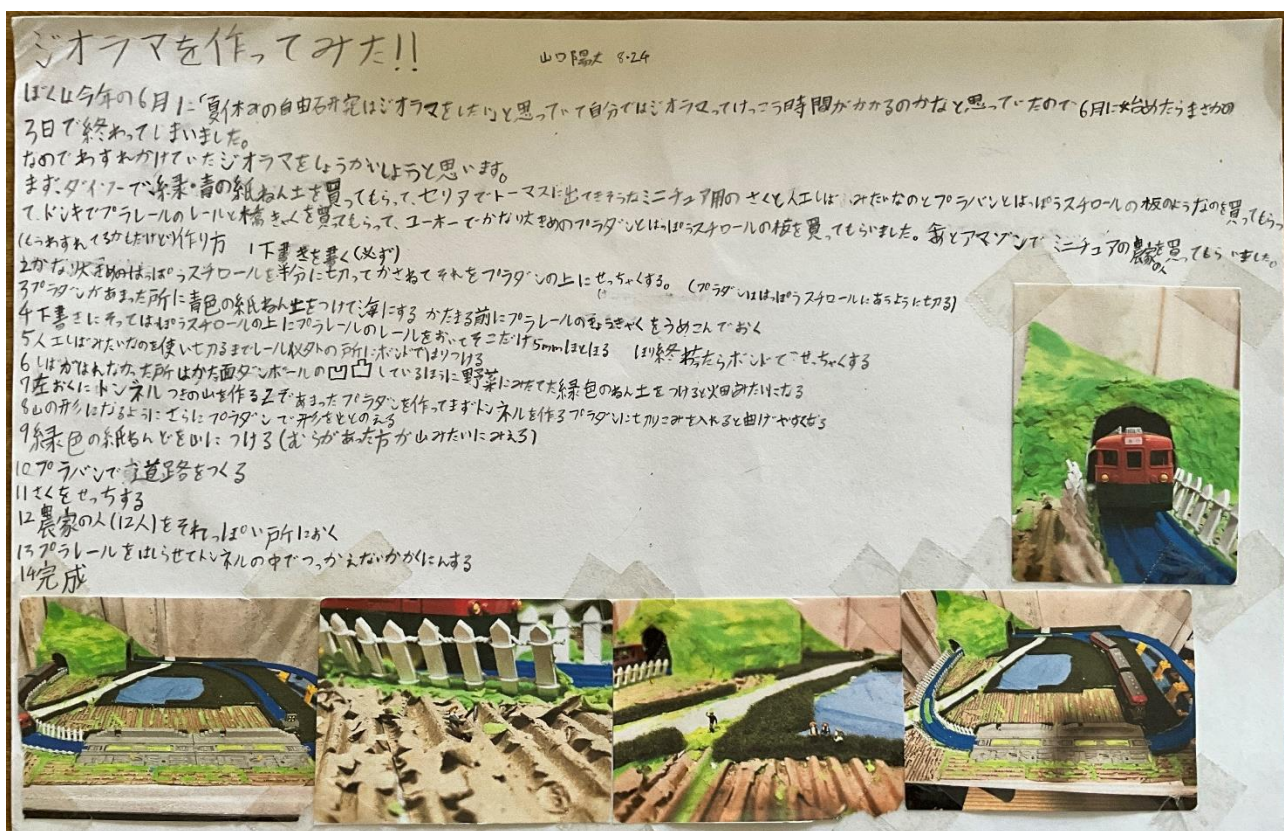 ジオラマを作ってみた!!
山口陽大 8.24
ぼくは今年の6月に「夏休みの自由研究はジオラマをしたいと思っていて自分ではジオラマってけっこう時間がかかるのかなと思っていたので6月に始めたらまさかの
3日で終わってしまいました。
なのでわすれかけていたジオラマをしょうかいしようと思います。
まず、ダイソーで緑・青の紙ねん土を買ってもらって、セリアでトーマスに出てきそうなミニチュア用のさくと人工しばみたいなのとプラバンとはっぽうスチロールの板のようなのを買ってもらっ
て、ドンキでプラレールのレールと橋きゃくを買ってもらって、ユーホーでかなり大きめのプラダンとはっぽうスチロールの板を買ってもらいました。あとアマゾンでミニチュアの農家の人を買ってもらいました。
(もうわすれてるかもだけど)作り方 1下書きを書く(必ず)
2かなり大きめのはっぽうスチロールを半分に切ってかさねてそれをプラダンの上にせっちゃくする。 (プラダンははっぽうスチロールにあうように切る)
3プラダンがあまった所に青色の紙ねん土をつけて海にする かたまる前にプラレールのきょうきゃくをうめこんでおく
4下書きにそってはっぽうスチロールの上にプラレールのレールをおいてそこだけ5mmほどほる ほり終わったらボンドでせっちゃくする
5人工しばみたいなのを使い切るまでレール以外の所にボンドではりつける
6しばがはれなかった所はかた面ダンボールの凹凸しているほうに野菜にみたてた緑色のねん土をつけると畑みたいになる
7左おくにトンネルつきの山を作る2であまったプラダンを作ってまずトンネルを作るプラダンに切りこみを入れると曲げやすくなる
8山の形になるようにさらにプラダンで形をととのえる
9緑色の紙ねんどを山につける(むらがあった方が山みたいにみえる)
10プラバンで道路をつくる
11さくをせっちする
12農家の人(12人)をそれっぽい所におく
13プラレールをはしらせてトンネルの中でつっかえないかかくにんする
14完成